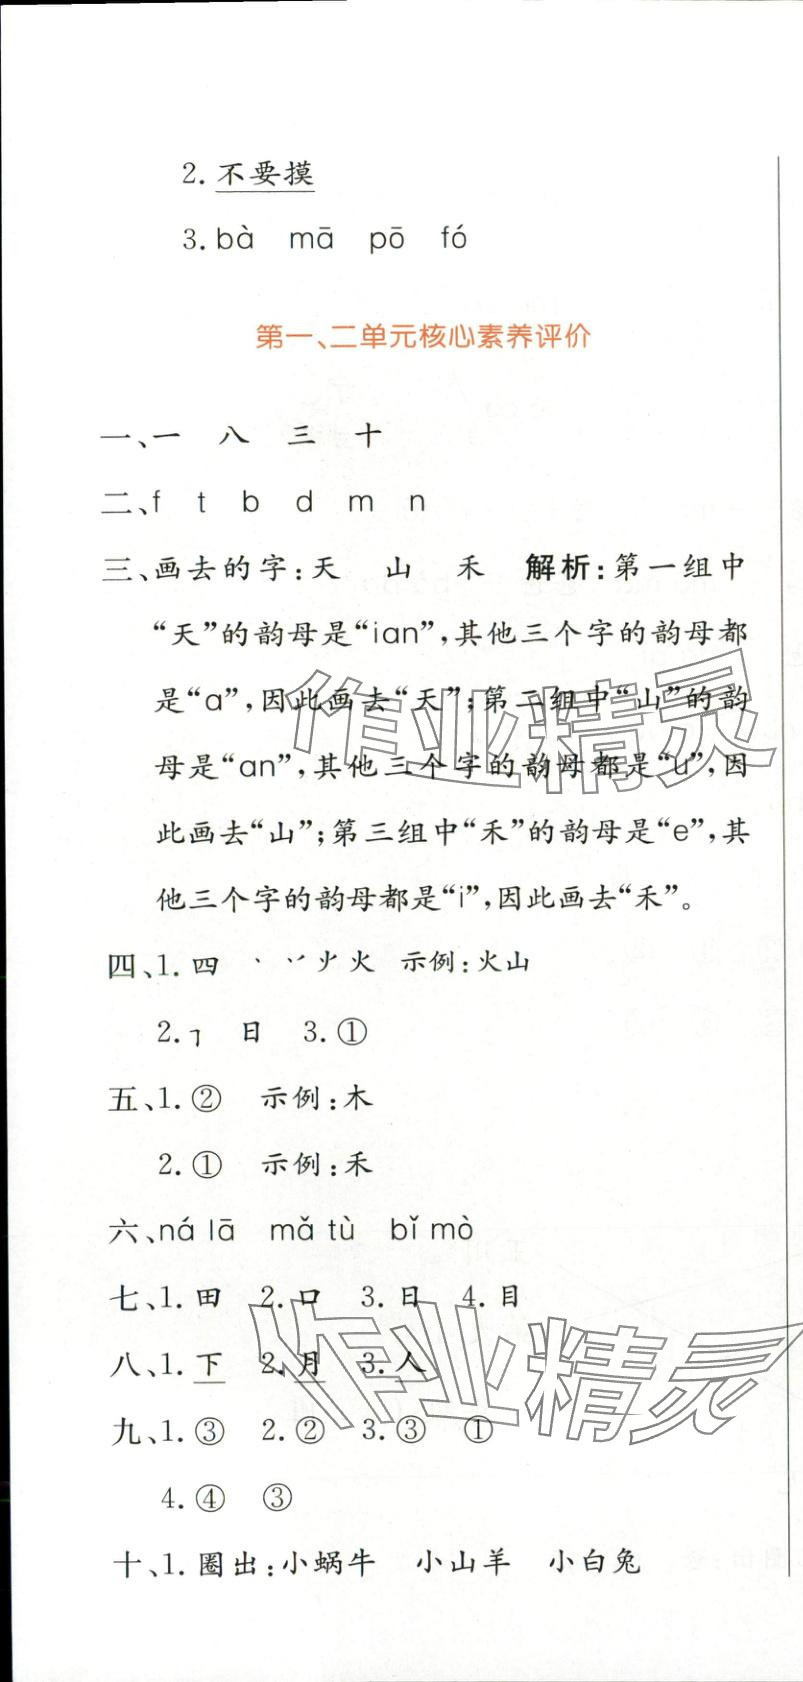 2. 不要摸
3. bà mā pō fó
第一、二单元核心素养评价
一、一 八 三 十
二、f t b d m n
三、画去的字:天 山 禾 解析:第一组中
“天”的韵母是“ian”,其他三个字的韵母都
是“a”,因此画去“天”;第二组中“山”的韵
母是“an”,其他三个字的韵母都是“u”,因
此画去“山”;第三组中“禾”的韵母是“e”,其
他三个字的韵母都是“i”,因此画去“禾”。
作业精灵
四、1. 四 丶 丷 火 示例:火山
2. ㇆ 日 3. ①
五、1. ② 示例:木
2. ① 示例:禾
六、ná lā mǎ tù bǐ mò
七、1. 田 2. 口 3. 日 4. 目
八、1. 下 2. 月 3. 人
作业精灵
九、1. ③ 2. ② 3. ③ ①
4. ④ ③
十、1. 圈出:小蜗牛 小山羊 小白兔